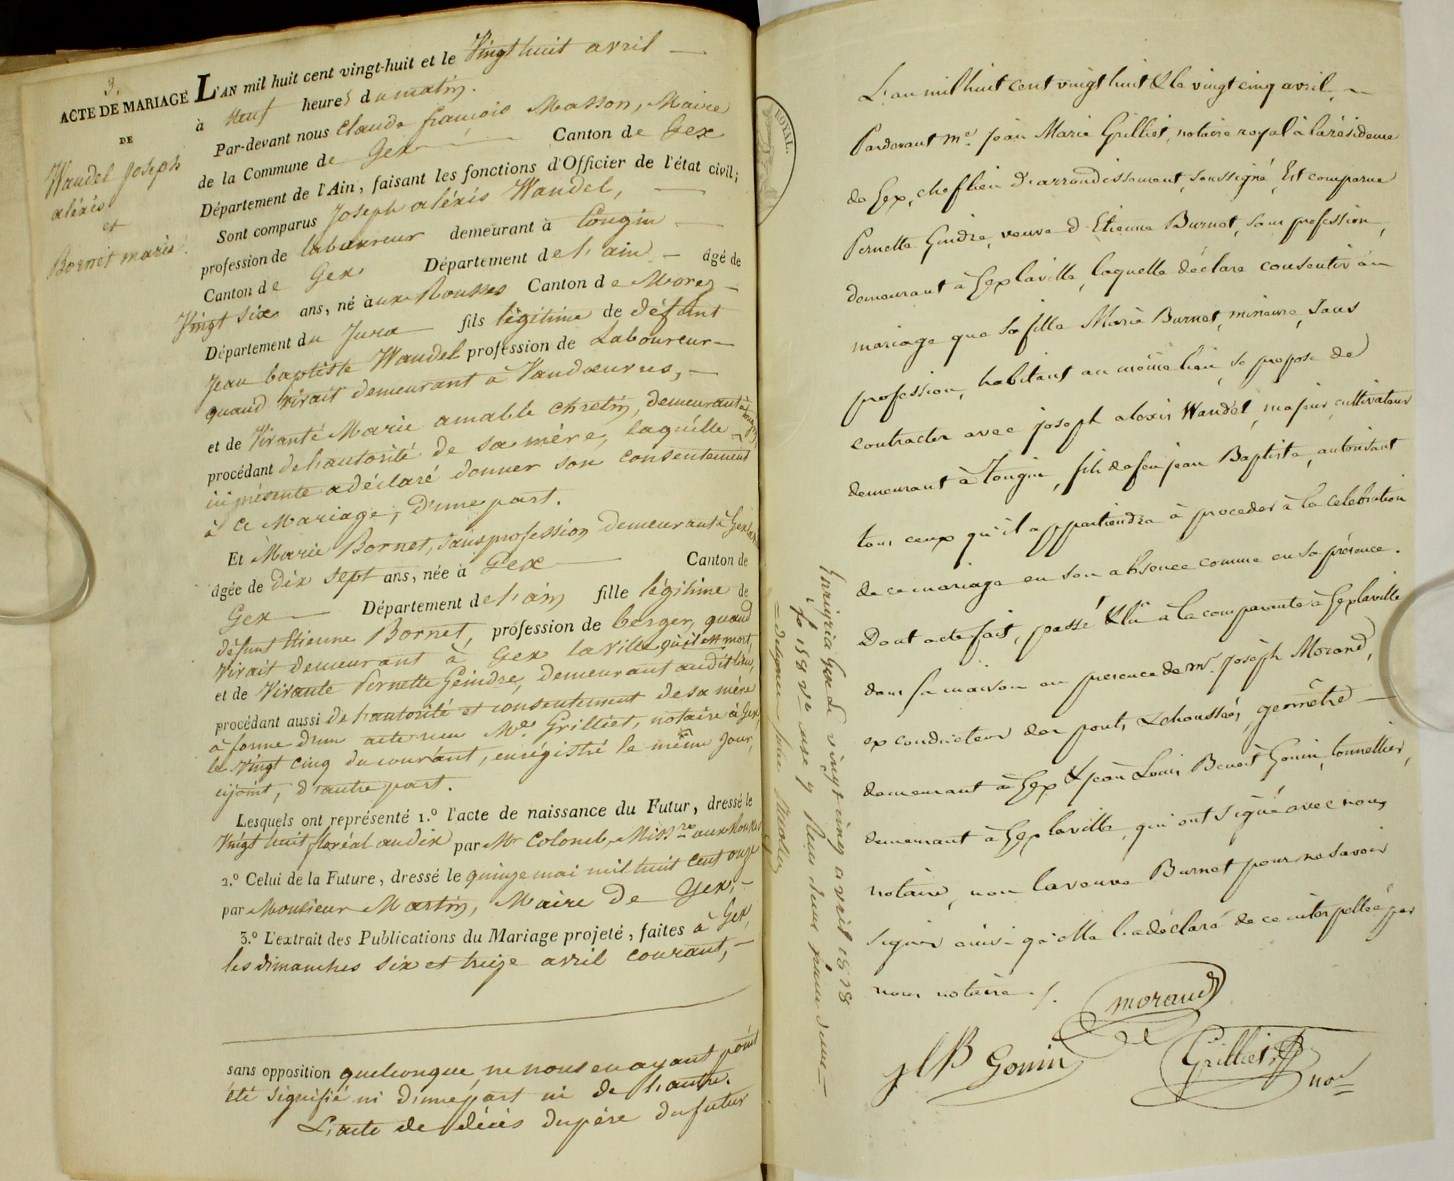 3.
ACTE DE MARIAGE
DE
Wandel Joseph
aléxis
et
Bornet marie
L'AN mil huit cent vingt-huit et le Vingt huit avril —
à neuf heures du matin.
Par-devant nous Claude françois Masson, Maire
de la Commune de Gex — Canton de Gex
Département de l'Ain, faisant les fonctions d'Officier de l'état civil;
Sont comparus Joseph aléxis Wandel, —
profession de laboureur demeurant à Tougin —
Canton de Gex Département de l'ain — âgé de
Vingt six ans, né aux Rousses Canton de Morez —
Département du Jura — fils légitime de défunt
Jean baptiste Wandel profession de Laboureur —
quand vivait demeurant à Vandœuvres, —
et de Vivante Marie amable Chretin, demeurant à Tougin
procédant de l'autorité de sa mère, laquelle
ici présente a déclaré donner son consentement
à ce Mariage; D'une part.
Et Marie Bornet, sans profession demeurant à Gex la ville
âgée de dix sept ans, née à Gex — Canton de
Gex — Département de l'ain fille légitime de
défunt Etienne Bornet, profession de berger, quand
vivait demeurant à Gex la ville où il est mort,
et de Vivante Pernette Geindre, demeurant audit lieu,
procédant aussi de l'autorité et consentement de sa mère
à forme d'un acte reçu Me. Grilliet, notaire à Gex,
le vingt cinq du courant, enrégistré le même jour,
cijoint, d'autre part.
Lesquels ont représenté 1.° l'acte de naissance du Futur, dressé le
Vingt huit floréal an dix par Mr Colomb, Miss.re aux Rousses
2.° Celui de la Future, dressé le quinze mai mil huit cent onze
par Monsieur Martin, Maire de Gex, —
3.° L'extrait des Publications du Mariage projeté, faites à Gex,
les dimanches six et treize avril courant, —
sans opposition quelconque, ne nous en ayant point
été signifié ni d'une part ni de l'autre.
L'acte de décès du père du futur
ROYAL.
L'an mil huit cent vingt huit & le vingt cinq avril, —
Pardevant me. Jean Marie Grilliet, notaire royal à la résidence
de Gex, chef lieu d'arrondissement, soussigné, Est comparue
Pernette Gindre, veuve d'Etienne Burnet, sans profession,
demeurant à Gex la ville, laquelle déclare consentir au
mariage que sa fille Marie Burnet, mineure, sans
profession, habitant au même lieu, se propose de
contracter avec joseph alexis Wandel, majeur, cultivateur
demeurant à Tougin, fils de feu jean Baptiste, autorisant
tous ceux qu'il appartiendra à proceder à la celebration
de ce mariage en son absence comme en sa présence.
Dont acte fait, passé & lu à la comparante à Gex la ville
dans sa maison en presence de mr. joseph Morand,
ex conducteur des ponts & chaussées, géomètre —
demeurant à Gex & jean Louis Benoit Gonin, tonnellier,
demeurant à Gex la ville, qui ont signé avec nous
notaire, non la veuve Burnet pour ne savoir
signer ainsi qu'elle l'a déclaré de ce interpellée par
nous notaire./.
morand
J L B Gonin
Grilliet
nore
Enrégistré à Gex le vingt cinq avril 1828